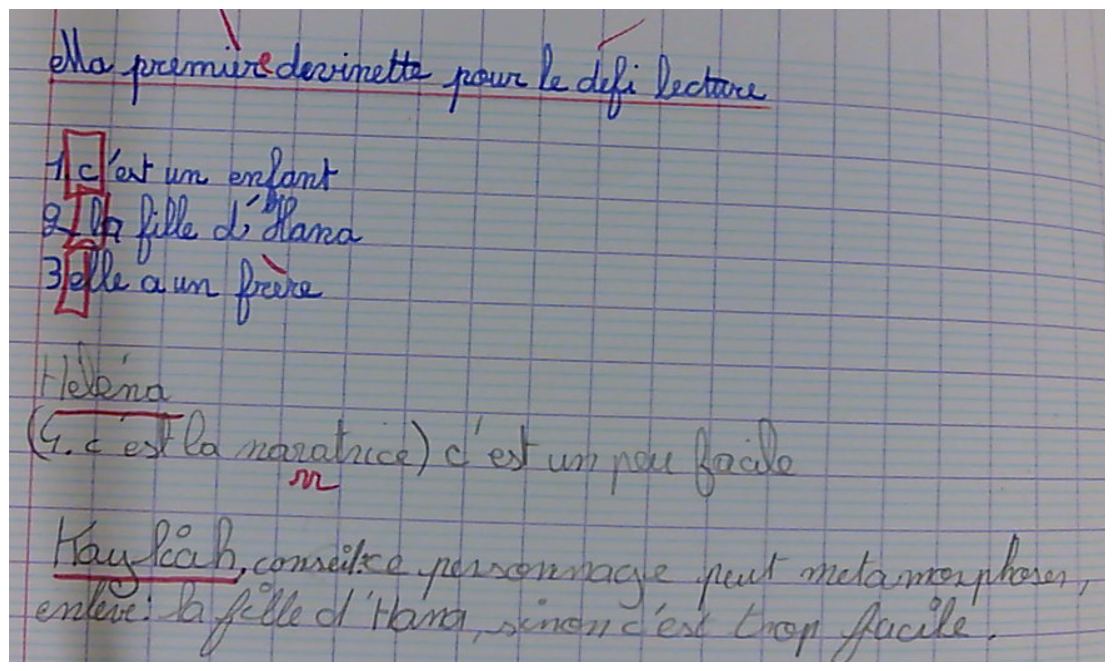 Ma première devinette pour le défi lecture
1 c'est un enfant
2 la fille d'Hana
3 elle a un frère
Héléna
(4. c'est la naratrice) c'est un peu facile
rr
Haykeah, conseil: ce personnage peut metamorphoser,
enlève: la fille d'Hana, sinon c'est trop facile.